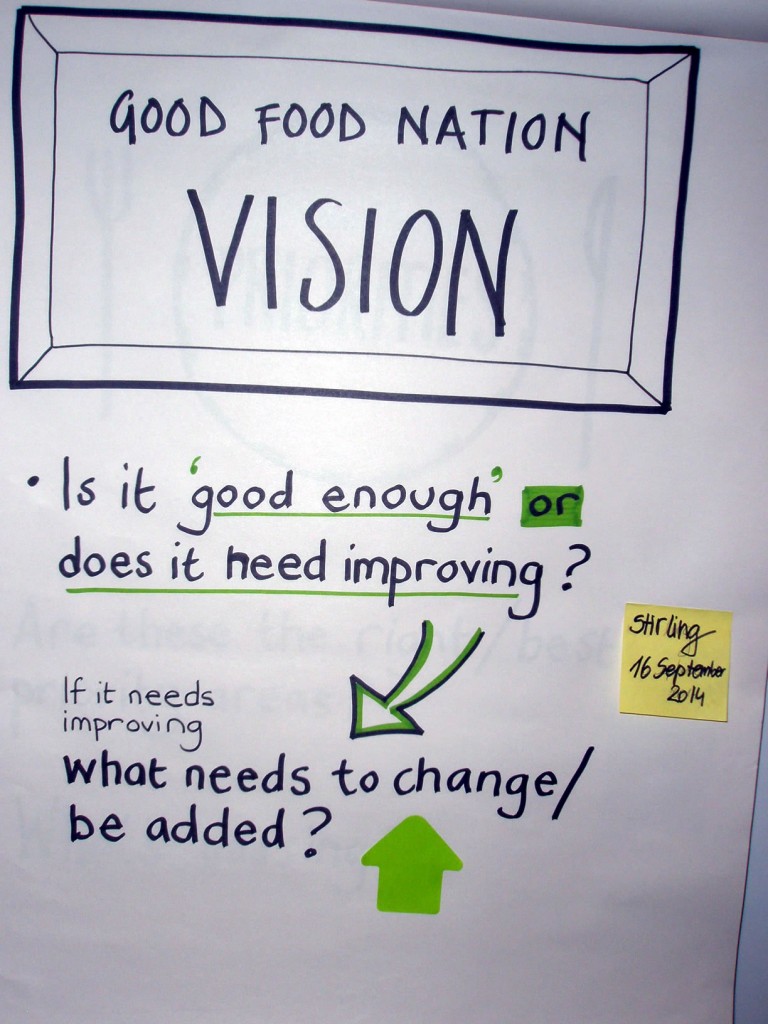 GOOD FOOD NATION
VISION
• Is it 'good enough' or
does it need improving?
Stirling
16 September
2014
If it needs
improving
what needs to change/
be added?
PRIORITIES
Are these the right/best